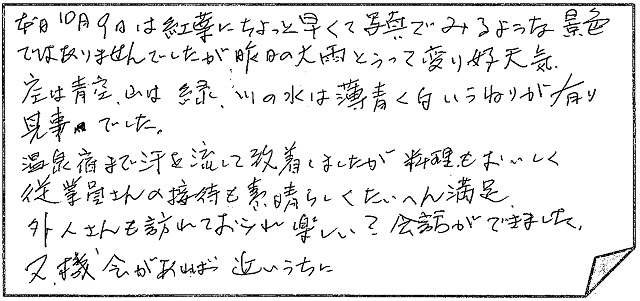 本日10月9日は紅葉にちょっと早くて写真でみるような景色
ではありませんでしたが昨日の大雨とうって変り好天気.
空は青空、山は緑、川の水は薄青く白いうねりが有り
見事でした。
温泉宿まで汗を流して到着しましたが料理もおいしく
従業員さんの接待も素晴らしくたいへん満足.
外人さんも訪れておられ楽しい?会話ができました.
又、機会があれば近いうちに